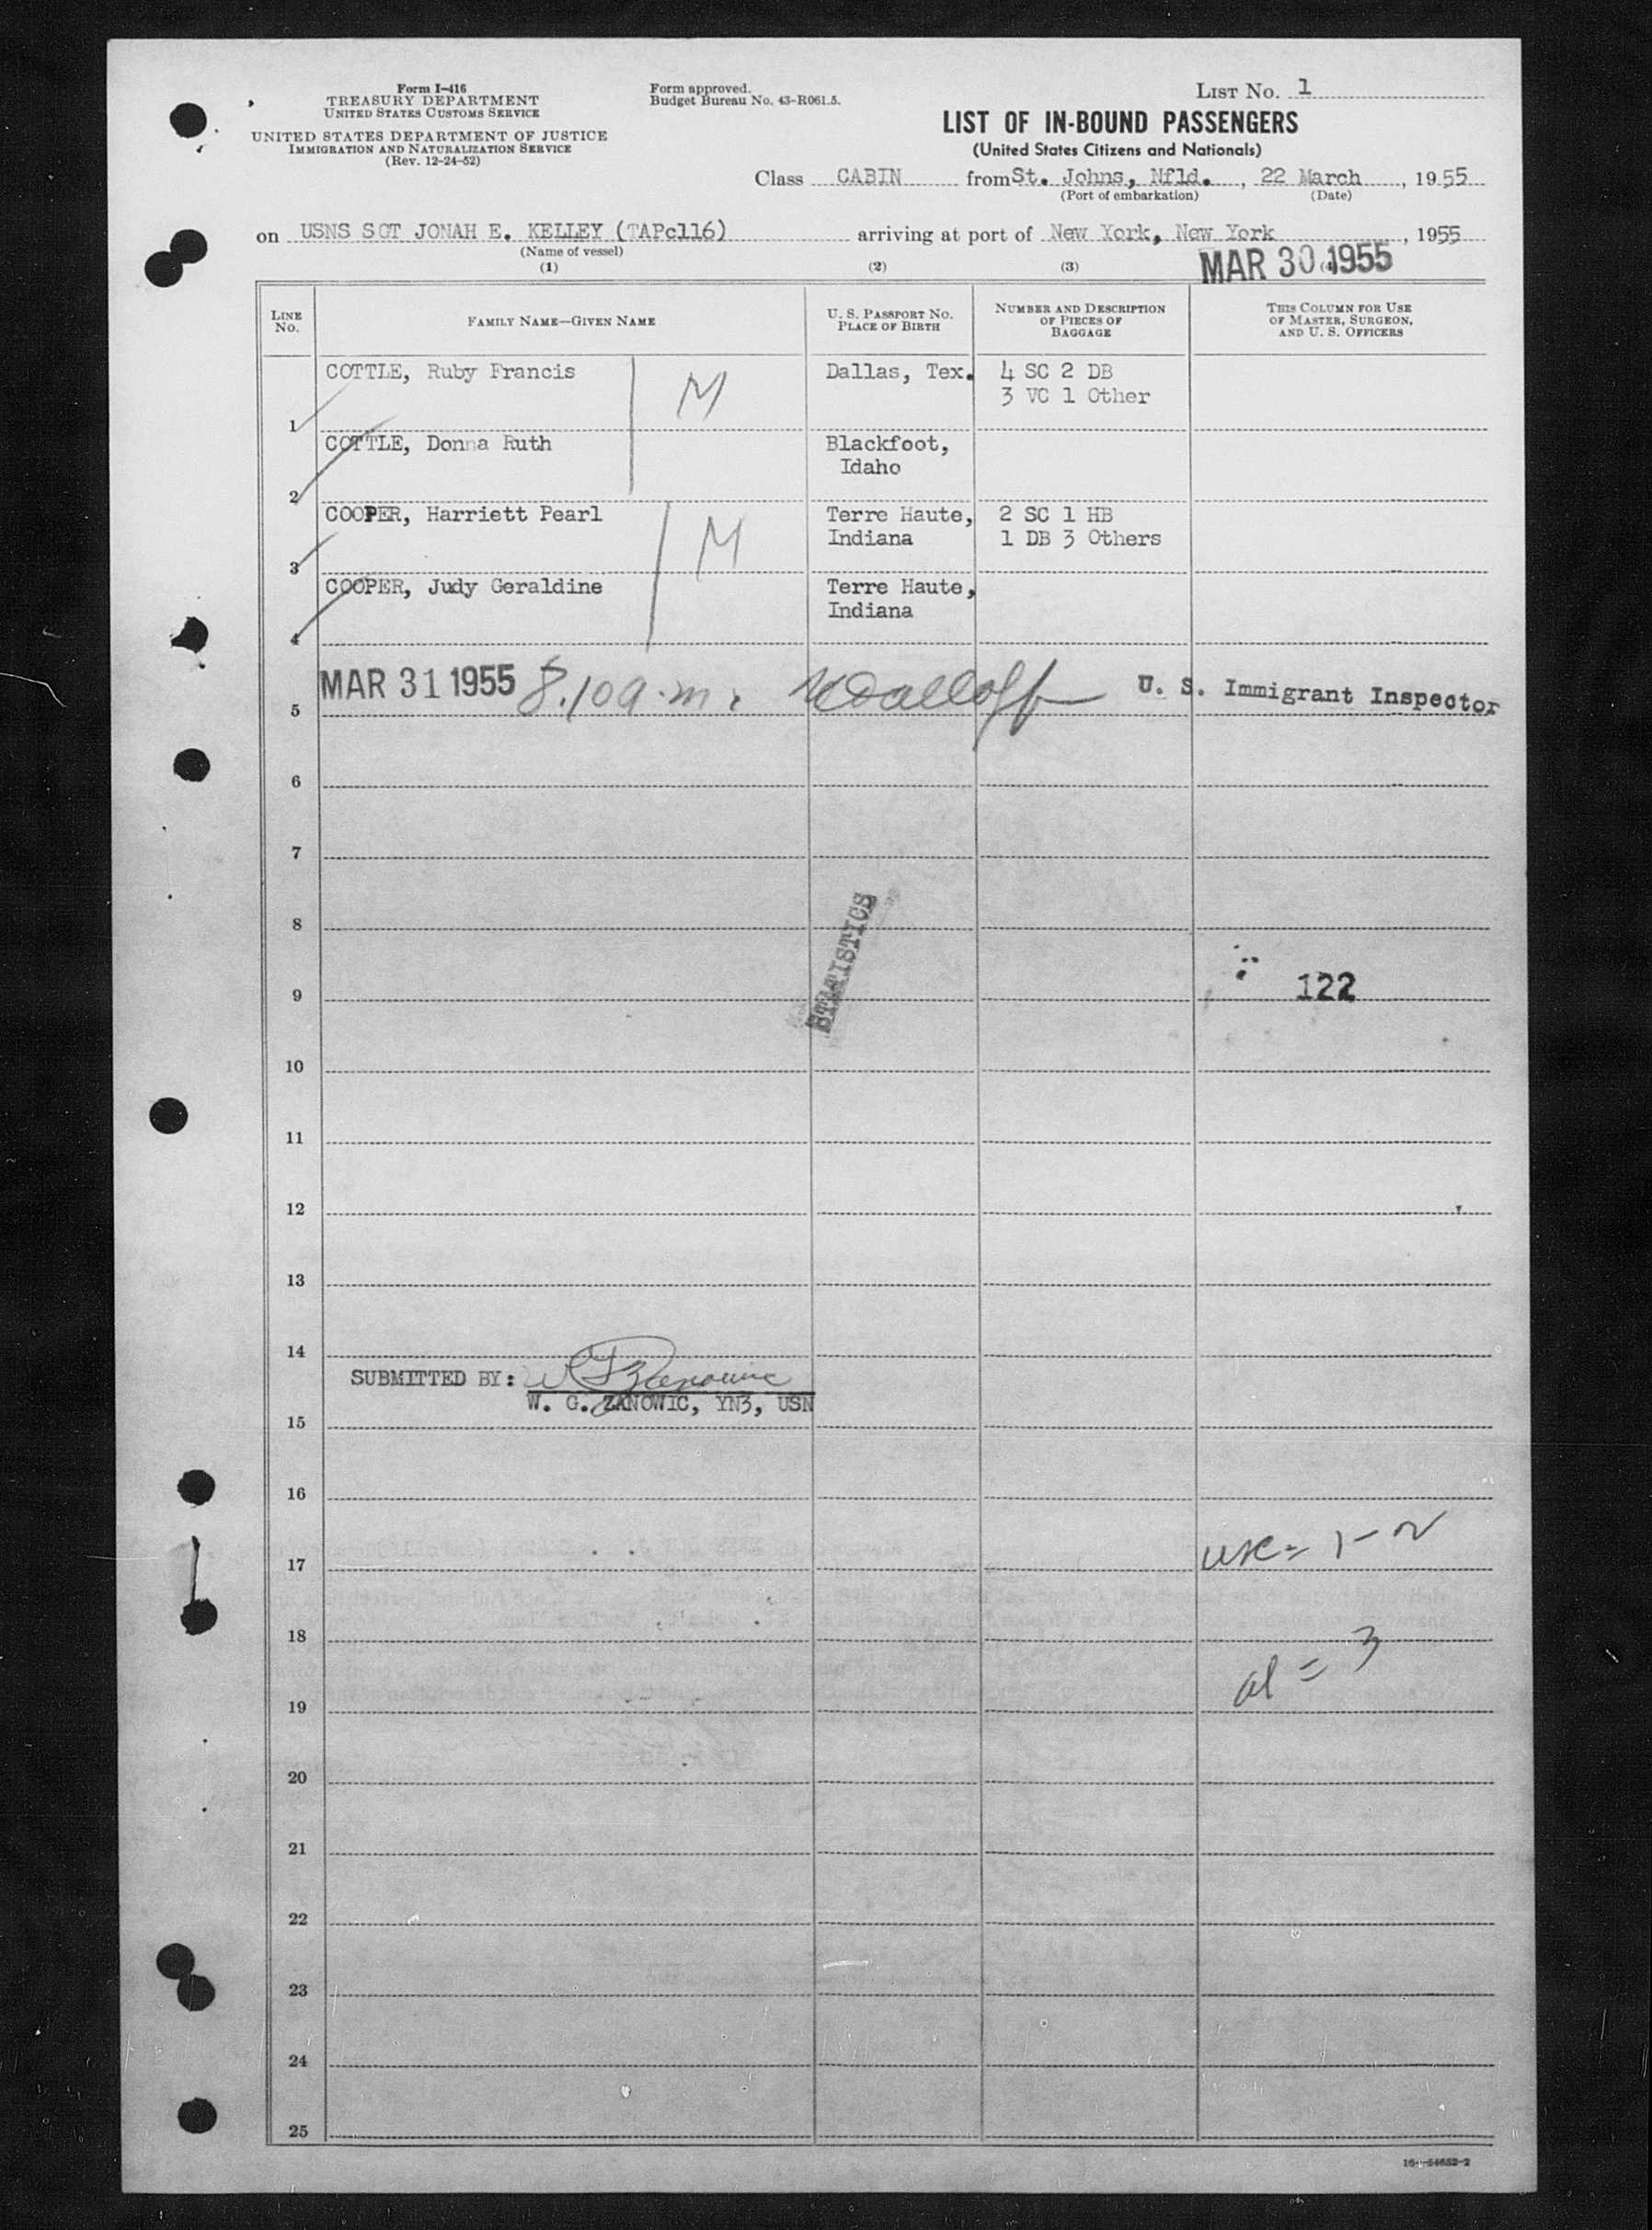 Form I-416
TREASURY DEPARTMENT
UNITED STATES CUSTOMS SERVICE
UNITED STATES DEPARTMENT OF JUSTICE
IMMIGRATION AND NATURALIZATION SERVICE
(Rev. 12-24-52)
Form approved.
Budget Bureau No. 43-R061.5.
LIST NO. 1
LIST OF IN-BOUND PASSENGERS
(United States Citizens and Nationals)
Class CABIN from St. Johns, Nfld., 22 March, 1955
(Port of embarkation) (Date)
on USNS SGT JONAH E. KELLEY (TAPc116) arriving at port of New York, New York, 1955
(Name of vessel)
MAR 30 1955
(1) (2) (3) (4)
LINE NO.
FAMILY NAME—GIVEN NAME
U. S. PASSPORT NO.
PLACE OF BIRTH
NUMBER AND DESCRIPTION
OF PIECES OF
BAGGAGE
THIS COLUMN FOR USE
OF MASTER, SURGEON,
AND U. S. OFFICERS
COTTLE, Ruby Francis M Dallas, Tex. 4 SC 2 DB
3 VC 1 Other
1
COTTLE, Donna Ruth Blackfoot,
Idaho
2
COOPER, Harriett Pearl M Terre Haute, 2 SC 1 HB
Indiana 1 DB 3 Others
3
COOPER, Judy Geraldine Terre Haute,
Indiana
4
MAR 31 1955 8.10 a.m. U. S. Immigrant Inspector
5
6
7
STATISTICS
8
9 122
10
11
12
13
14
SUBMITTED BY:
W. G. ZANOWIC, YN3, USN
15
16
17 usc = 1-2
18
al = 3
19
20
21
22
23
24
25